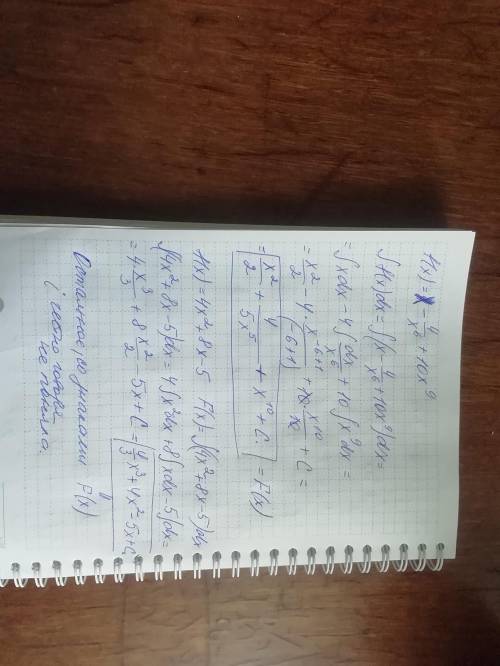 f(x) = x - 4/x^6 + 10x^9
∫f(x)dx = ∫(x - 4/x^6 + 10x^9)dx =
= ∫xdx - 4∫dx/x^6 + 10∫x^9dx =
= x^2/2 - 4 · x^(-6+1)/(-6+1) + 10 x^10/10 + C =
= x^2/2 + 4/5x^5 + x^10 + C. = F(x)
f(x) = 4x^2 + 8x - 5 F(x) = ∫(4x^2 + 8x - 5)dx
∫(4x^2 + 8x - 5)dx = 4∫x^2dx + 8∫xdx - 5∫dx =
= 4 x^3/3 + 8 x^2/2 - 5x + C = 4/3 x^3 + 4x^2 - 5x + C
F(x)
Останнє, со знаком
не поняла.